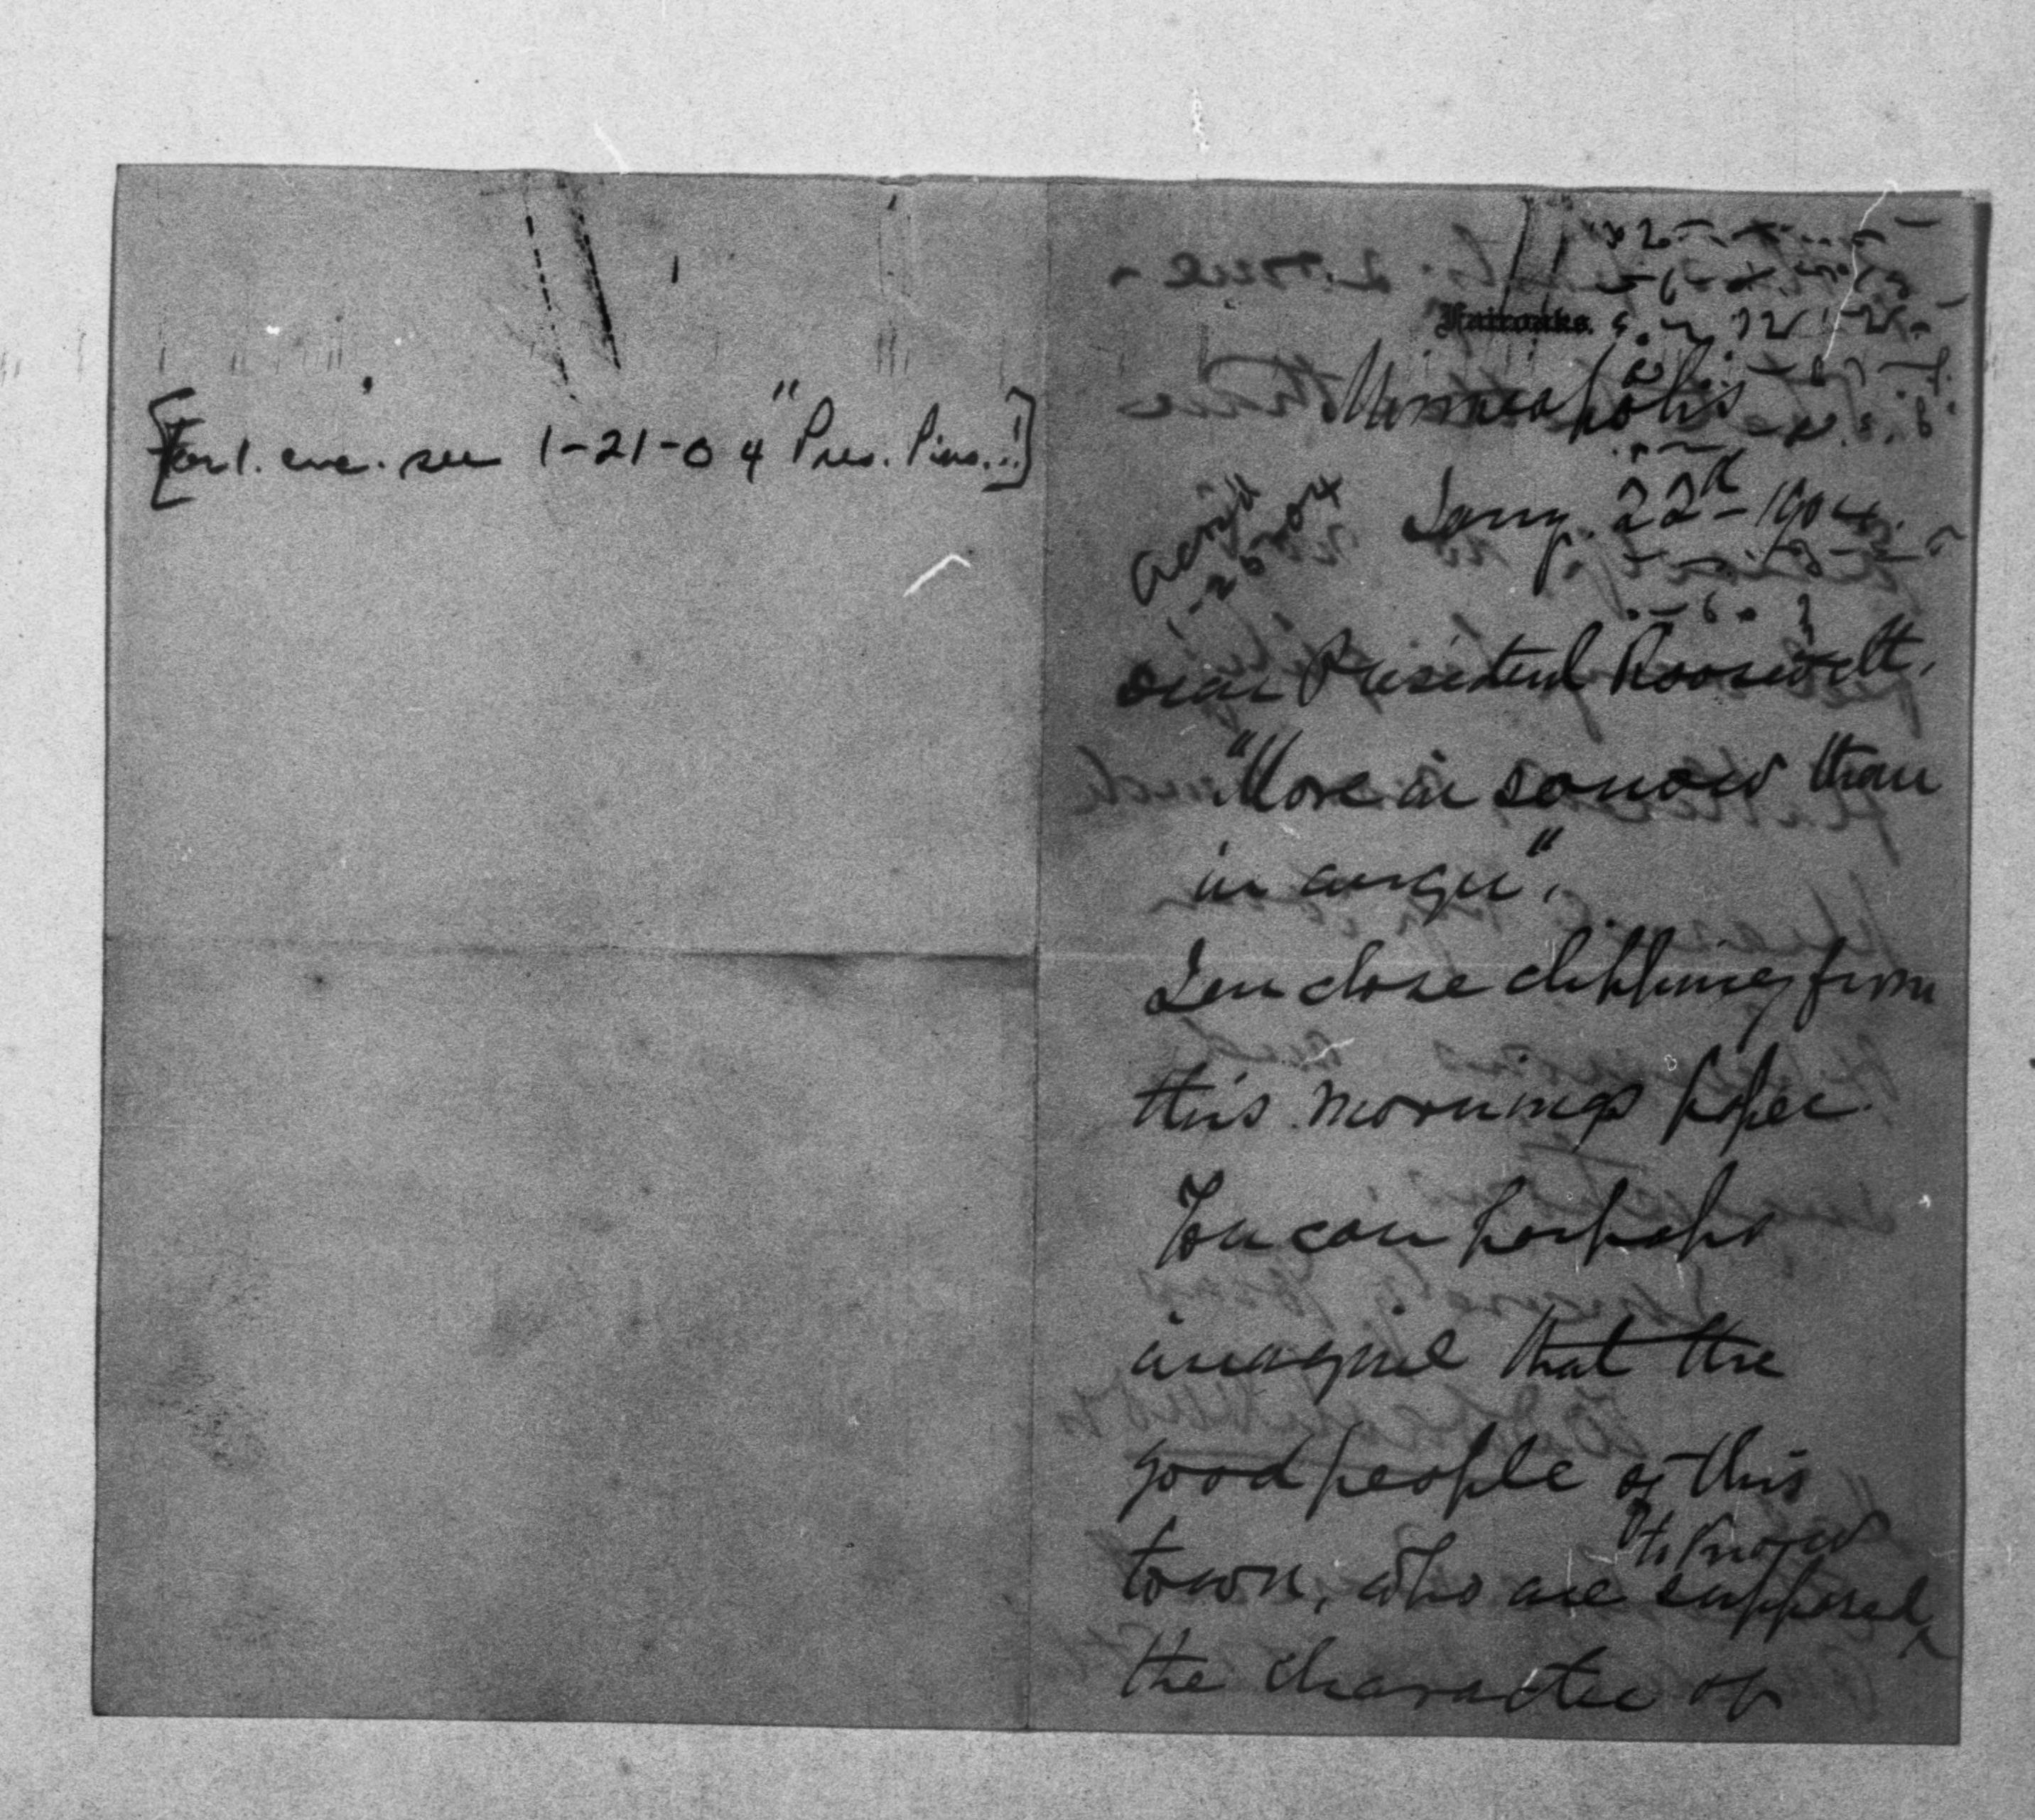 [For 1. enc. see 1-21-04 "Pres. Pins..."]
Fairoaks.
Minneapolis
Jany. 22d - 1904.
Ack'd
1-26-04
Dear President Roosevelt,
"More in sorrow than
in anger".
I enclose clipping from
this mornings paper.
You can perhaps
imagine that the
good people of this
to know
town, who are supposed ^
the character of